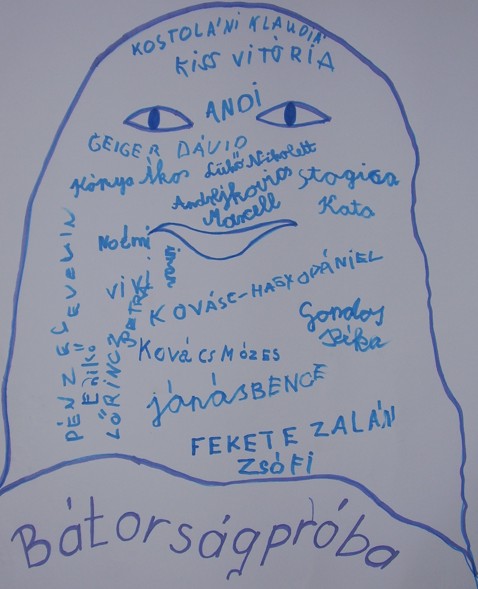 KOSTOLÁNI KLAUDIA
KISS VITÓRIA
ANDI
GEIGER DÁVID
Kónya Ákos
Lükő Nikolett
Andrejkovics
Marcell
Stagica
Kata
Noémi
VIK
PETRA
PÉNZES EVELIN
Enikő
LŐRINCZ
KOVÁSC-HAGYÓDÁNIEL
Gondos
Réka
KOVÁCS MÓZES
jánásBENCE
FEKETE ZALÁN
ZSÓFI
Bátorságpróba